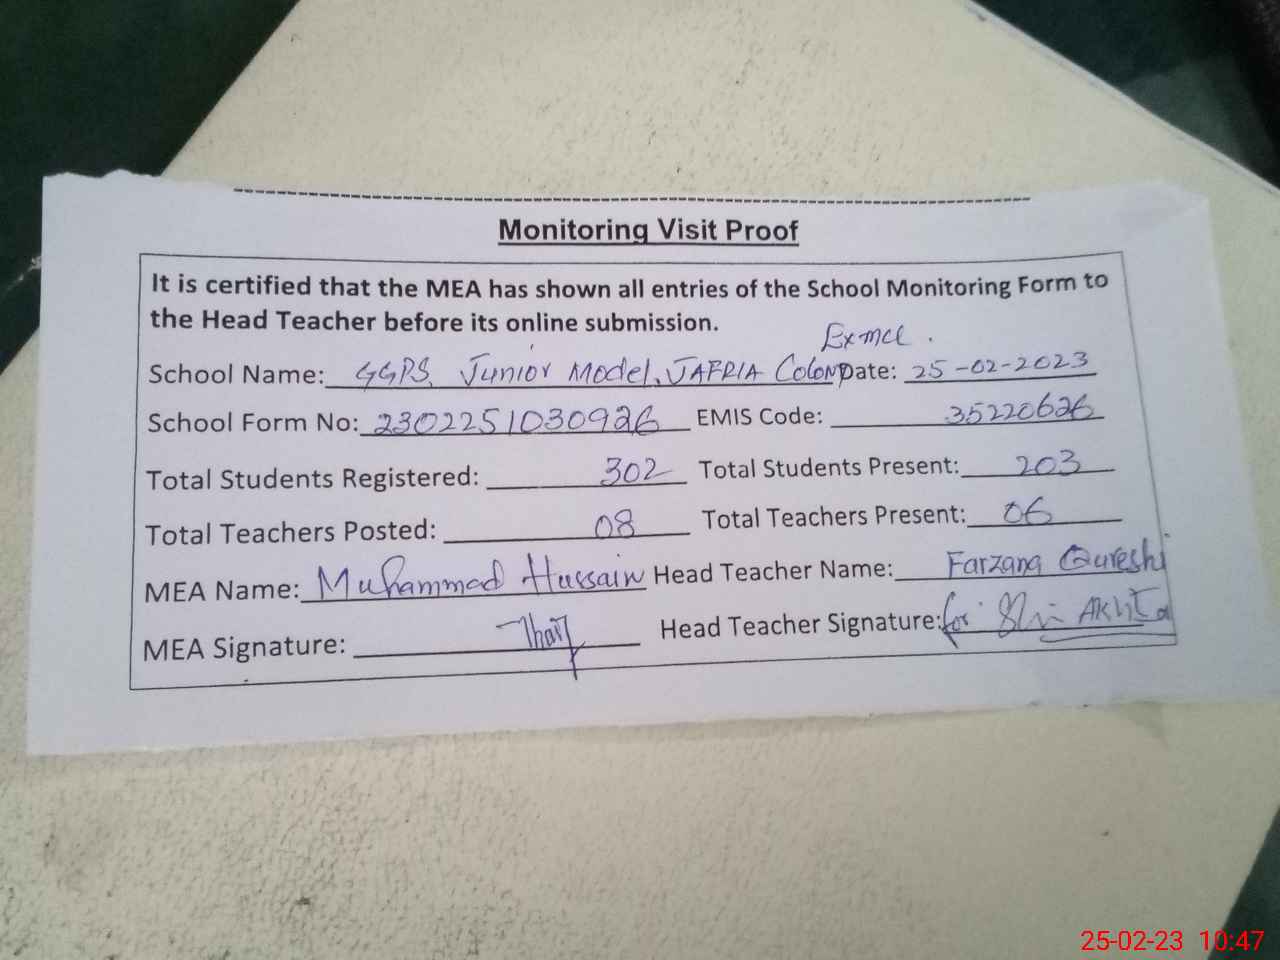 Monitoring Visit Proof
It is certified that the MEA has shown all entries of the School Monitoring Form to
the Head Teacher before its online submission.
Exmcl.
School Name: GGPS, Junior Model, JAFRIA Colony Date: 25-02-2023
School Form No: 2302251030926 EMIS Code: 35220626
Total Students Registered: 302 Total Students Present: 203
Total Teachers Posted: 08 Total Teachers Present: 06
MEA Name: Muhammad Hussain Head Teacher Name: Farzana Qureshi
MEA Signature: Head Teacher Signature: for
25-02-23 10:47